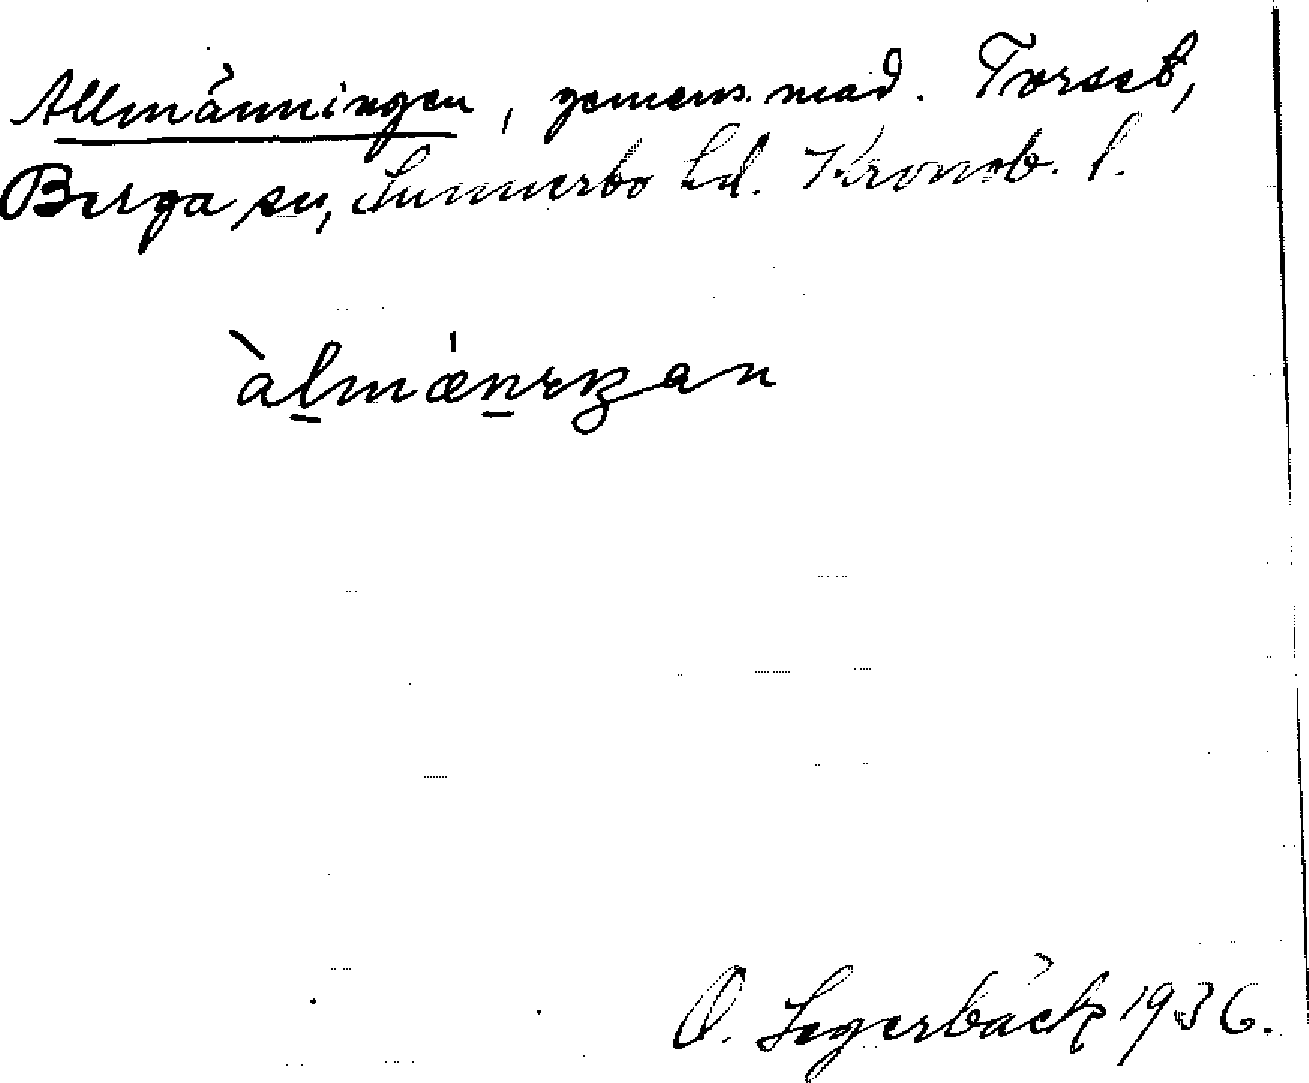 Allmänningen, gemens. mad. Torset,
Berga sn, Sunnerbo hd. Kronob. l.
àlmǽnıŋan
O. Segerbäck 1936.